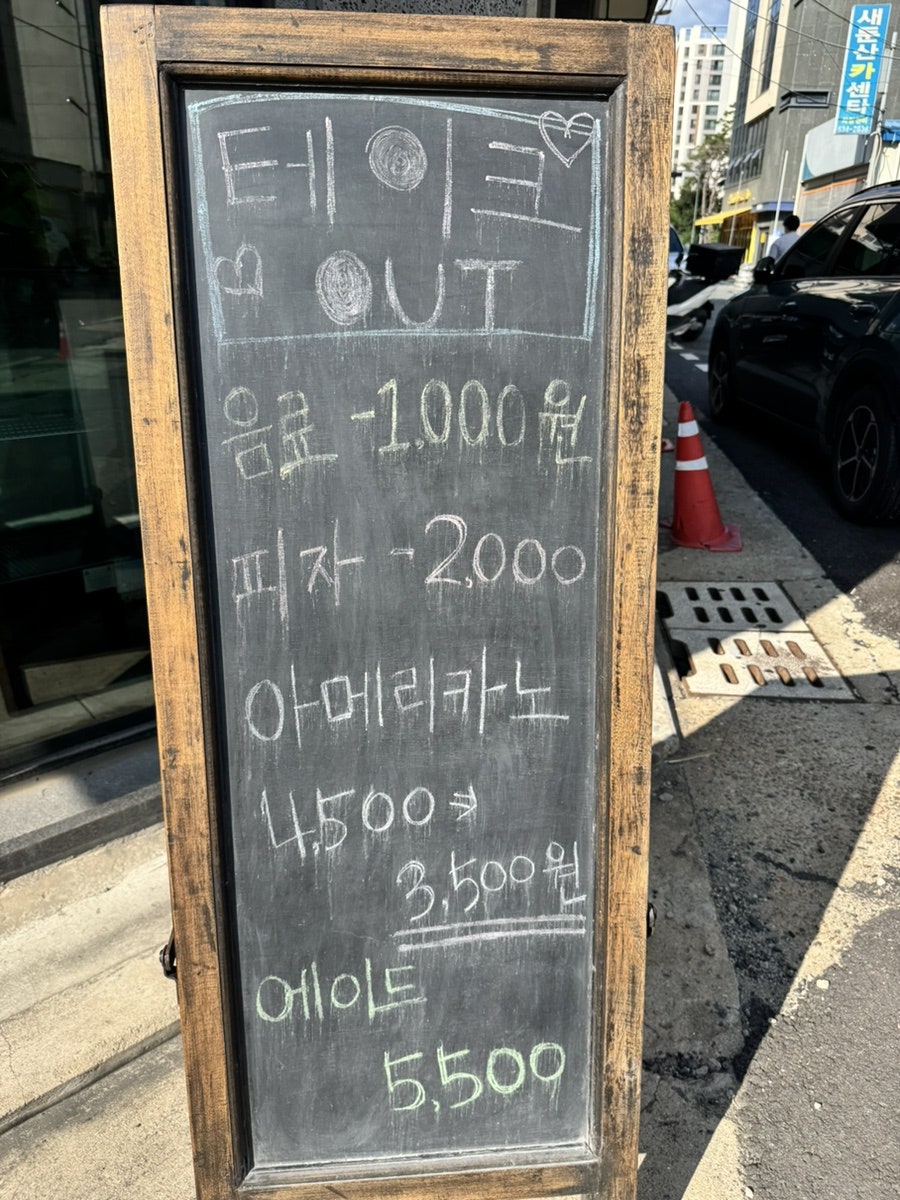 테이크
B OUT
음료 -1,000원
피자 -2,000
아메리카노
4,500⇒
3,500원
에이드
5,500
새둔산카센타